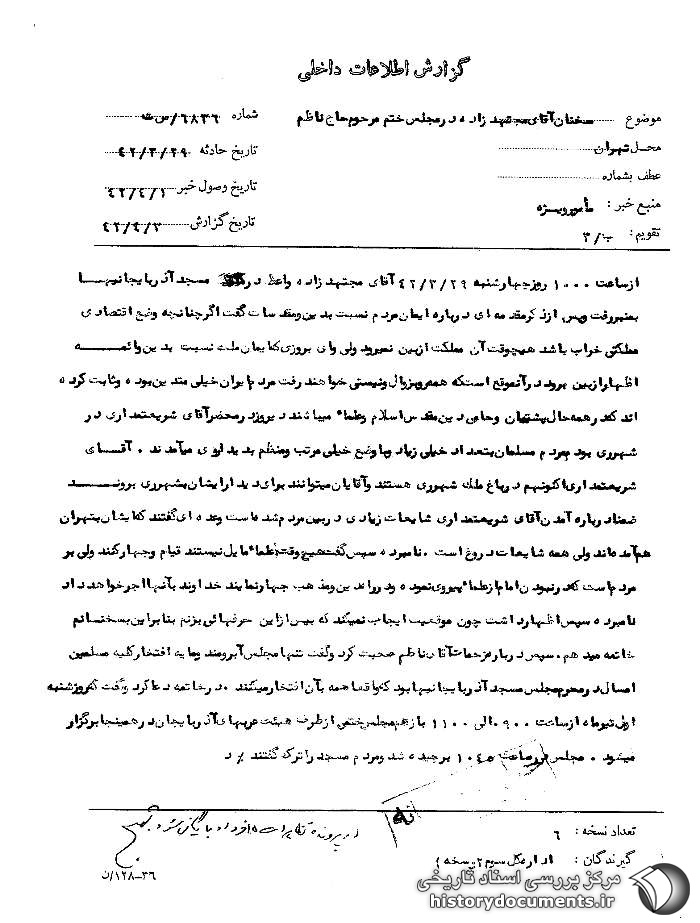 گزارش اطلاعات داخلی
موضوع سخنان آقای مجتهد زاده در مجلس ختم مرحوم حاج ناظم
شماره ۶۸۳۶/س ت
محل تهران
تاریخ حادثه ۴۲/۳/۲۹
عطف بشماره
تاریخ وصول خبر ۴۲/۴/۱
منبع خبر : مأمور ویژه
تاریخ گزارش ۴۲/۴/۳
تقویم : ب/۳
از ساعت ۱۰۰۰ روز چهارشنبه ۴۲/۳/۲۹ آقای مجتهد زاده واعظ در مسجد آذربایجانیها
بمنبر رفت و پس از ذکر مقدمه ای درباره ایمان مردم نسبت بدین و مقدسات گفت اگر چنانچه وضع اقتصادی
مملکتی خراب باشد هیچوقت آن مملکت از بین نمیرود ولی وای بروزی که ایمان ملت نسبت بدین و ائمه
اطهار از بین برود در آنموقع است که همه رو بزوال و نیستی خواهند رفت مردم ایران خیلی متدین بوده و ثابت کرده
اند که در همه حال پشتیبان و حامی دین مقدس اسلام و علماء میباشند دیروز در محضر آقای شریعتمداری در
شهرری بودم مردم مسلمان بتعداد خیلی زیاد و با وضع خیلی مرتب و منظم بدیدار وی میآمدند . آقای
شریعتمداری اکنون هم در باغ ملک شهرری هستند و آقایان میتوانند برای دیدار ایشان بشهرری بروند
ضمنا درباره آمدن آقای شریعتمداری شایعات زیادی در بین مردم شده است و عده ای گفتند که ایشان بتهران
هم آمده اند ولی همه شایعات دروغ است . نامبرده سپس گفت هیچوقت علماء مایل نیستند قیام و جهاد کنند ولی بر
مردم است که در نبودن امام از علماء پیروی نموده و در راه دین و مذهب جهاد نمایند خداوند بآنها اجر خواهد داد
نامبرده سپس اظهار داشت چون موقعیت ایجاب نمیکند که بیش از این حرفهائی بزنم بنابراین بسخنانم
خاتمه میدهم . سپس درباره زحمات آقای ناظم صحبت کرد و گفت تنها مجلس آبرومند و مایه افتخار کلیه مسلمین
امسال در محرم مجلس مسجد آذربایجانیها بود که واقعا همه بآن افتخار میکنند . در خاتمه دعا کرد و گفت که روز شنبه
اول تیرماه از ساعت ۹۰۰ الی ۱۱۰۰ باز هم مجلس ختمی از طرف هیئت عربهای آذربایجان در همینجا برگزار
میشود . مجلس در ساعت ۱۰۴۵ برچیده شد و مردم مسجد را ترک گفتند ٪ د
تعداد نسخه : ۶
گیرندگان : اداره کل سوم ۲ نسخه
۳۶–۱۲۸/ن
مرکز بررسی اسناد تاریخی
historydocuments.ir